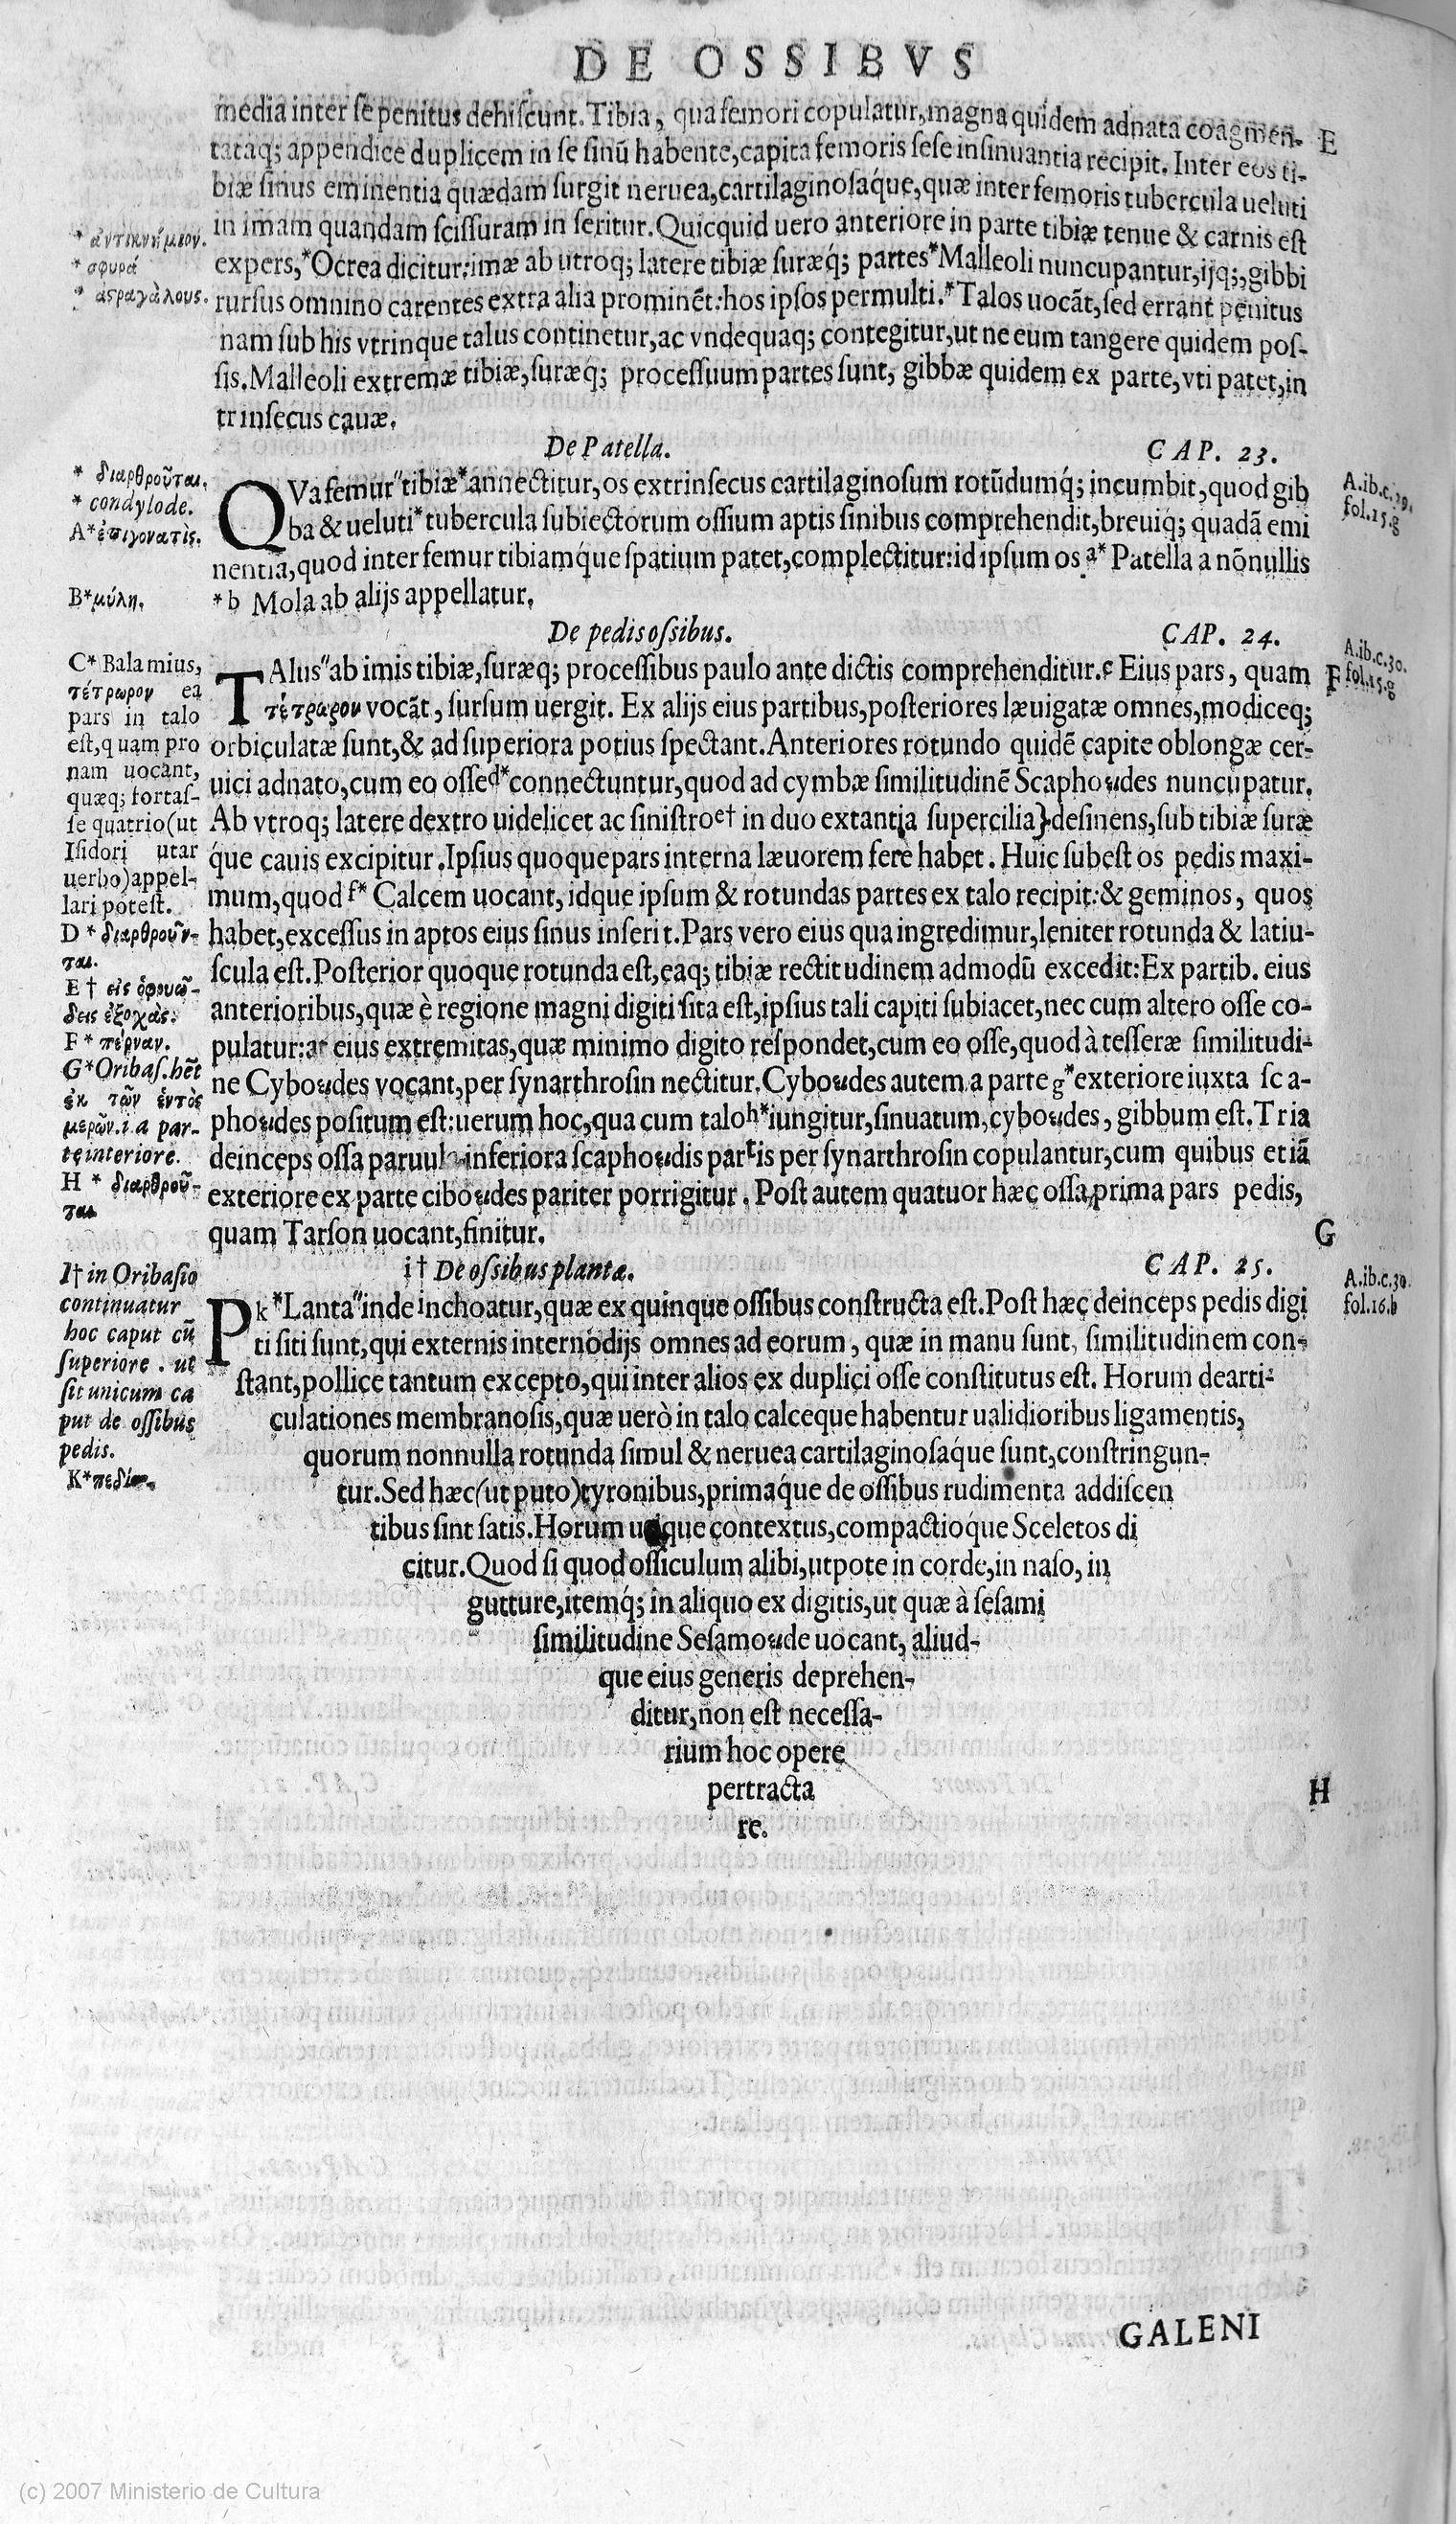 DE OSSIBVS
media inter se penitus dehiscunt. Tibia, qua femori copulatur, magna quidem adnata coagmen-
tataq; appendice duplicem in se sinū habente, capita femoris sese insinuantia recipit. Inter eos ti-
biæ sinus eminentia quædam surgit neruea, cartilaginosaq́ue, quæ inter femoris tubercula ueluti
in imam quandam scissuram in seritur. Quicquid uero anteriore in parte tibiæ tenue & carnis est
expers, *Ocrea dicitur: imæ ab utroq; latere tibiæ suræq́; partes *Malleoli nuncupantur, ijq;, gibbi
rursus omnino carentes extra alia prominēt: hos ipsos permulti. *Talos uocāt, sed errant penitus
nam sub his vtrinque talus continetur, ac vndequaq; contegitur, ut ne eum tangere quidem pos-
sis. Malleoli extremæ tibiæ, suræq́; processuum partes sunt, gibbæ quidem ex parte, vti patet, in
trinsecus cauæ.
* ἀντικνήμιον.
* σφυρά
* ἀστραγάλους.
E
De Patella. CAP. 23.
QVa femur "tibiæ *annectitur, os extrinsecus cartilaginosum rotūdumq́; incumbit, quod gib
ba & ueluti *tubercula subiectorum ossium aptis sinibus comprehendit, breuiq; quadā emi
nentia, quod inter femur tibiamq́ue spatium patet, complectitur: id ipsum os a* Patella a nōnullis
*b Mola ab alijs appellatur.
* διαρθροῦται.
* condylode.
A* ἐπιγονατὶς.
B* μύλη.
A.ib.c.29.
fol.15.g
De pedis ossibus. CAP. 24.
TAlus "ab imis tibiæ, suræq; processibus paulo ante dictis comprehenditur. c Eius pars, quam
τέτραρον vocāt, sursum uergit. Ex alijs eius partibus, posteriores læuigatæ omnes, modiceq;
orbiculatæ sunt, & ad superiora potius spectant. Anteriores rotundo quidē capite oblongæ cer-
uici adnato, cum eo osse d* connectuntur, quod ad cymbæ similitudinē Scaphoιdes nuncupatur.
Ab vtroq; latere dextro uidelicet ac sinistro e† in duo extantia supercilia} desinens, sub tibiæ suræ
q́ue cauis excipitur. Ipsius quoque pars interna læuorem ferè habet. Huic subest os pedis maxi-
mum, quod f* Calcem uocant, idque ipsum & rotundas partes ex talo recipit: & geminos, quos
habet, excessus in aptos eius sinus inserit. Pars vero eius qua ingredimur, leniter rotunda & latiu-
scula est. Posterior quoque rotunda est, eaq; tibiæ rectitudinem admodū excedit: Ex partib. eius
anterioribus, quæ è regione magni digiti sita est, ipsius tali capiti subiacet, nec cum altero osse co-
pulatur: at eius extremitas, quæ minimo digito respondet, cum eo osse, quod à tesseræ similitudi-
ne Cyboιdes vocant, per synarthrosin nectitur. Cyboιdes autem a parte g* exteriore iuxta sca-
phoιdes positum est: uerum hoc, qua cum talo h* iungitur, sinuatum, cyboιdes, gibbum est. Tria
deinceps ossa inferiora scaphoιdis partis per synarthrosin copulantur, cum quibus etiā
exteriore ex parte ciboιdes pariter porrigitur. Post autem quatuor hæc ossa, prima pars pedis,
quam Tarson uocant, finitur.
C* Balamius,
τέτρωρον ea
pars in talo
est, quam pro
nam uocant,
quæq; fortas-
se quatrio (ut
Isidori utar
uerbo) appel-
lari potest.
D * διαρθροῦν-
ται.
E † εἰς ὀφρυώ-
δεις ἐξοχὰς.
F * πτέρναν.
G* Oribas. hēt
ἐκ τῶν ἐντὸς
μερῶν. i. a par-
te interiore.
H * διαρθροῦ-
ται
A.ib.c.30.
fol.15.g
F
G
i† De ossibus plantæ. CAP. 25.
Pk *Lanta "inde inchoatur, quæ ex quinque ossibus constructa est. Post hæc deinceps pedis digi
ti siti sunt, qui externis internodijs omnes ad eorum, quæ in manu sunt, similitudinem con-
stant, pollice tantum excepto, qui inter alios ex duplici osse constitutus est. Horum dearti-
culationes membranosis, quæ uerò in talo calceque habentur ualidioribus ligamentis,
quorum nonnulla rotunda simul & neruea cartilaginosaq́ue sunt, constringun-
tur. Sed hæc (ut puto) tyronibus, primaq́ue de ossibus rudimenta addiscen
tibus sint satis. Horum contextus, compactioq́ue Sceletos di
citur. Quod si quod ossiculum alibi, utpote in corde, in naso, in
gutture, itemq́; in aliquo ex digitis, ut quæ à sesami
similitudine Sesamoιde uocant, aliud-
que eius generis deprehen-
ditur, non est necessa-
rium hoc opere
pertracta
re.
I† in Oribasio
continuatur
hoc caput cū
superiore. ut
sit unicum ca
put de ossibus
pedis.
K* πεδίον.
A.ib.c.30.
fol.16.b
H
GALENI
(c) 2007 Ministerio de Cultura